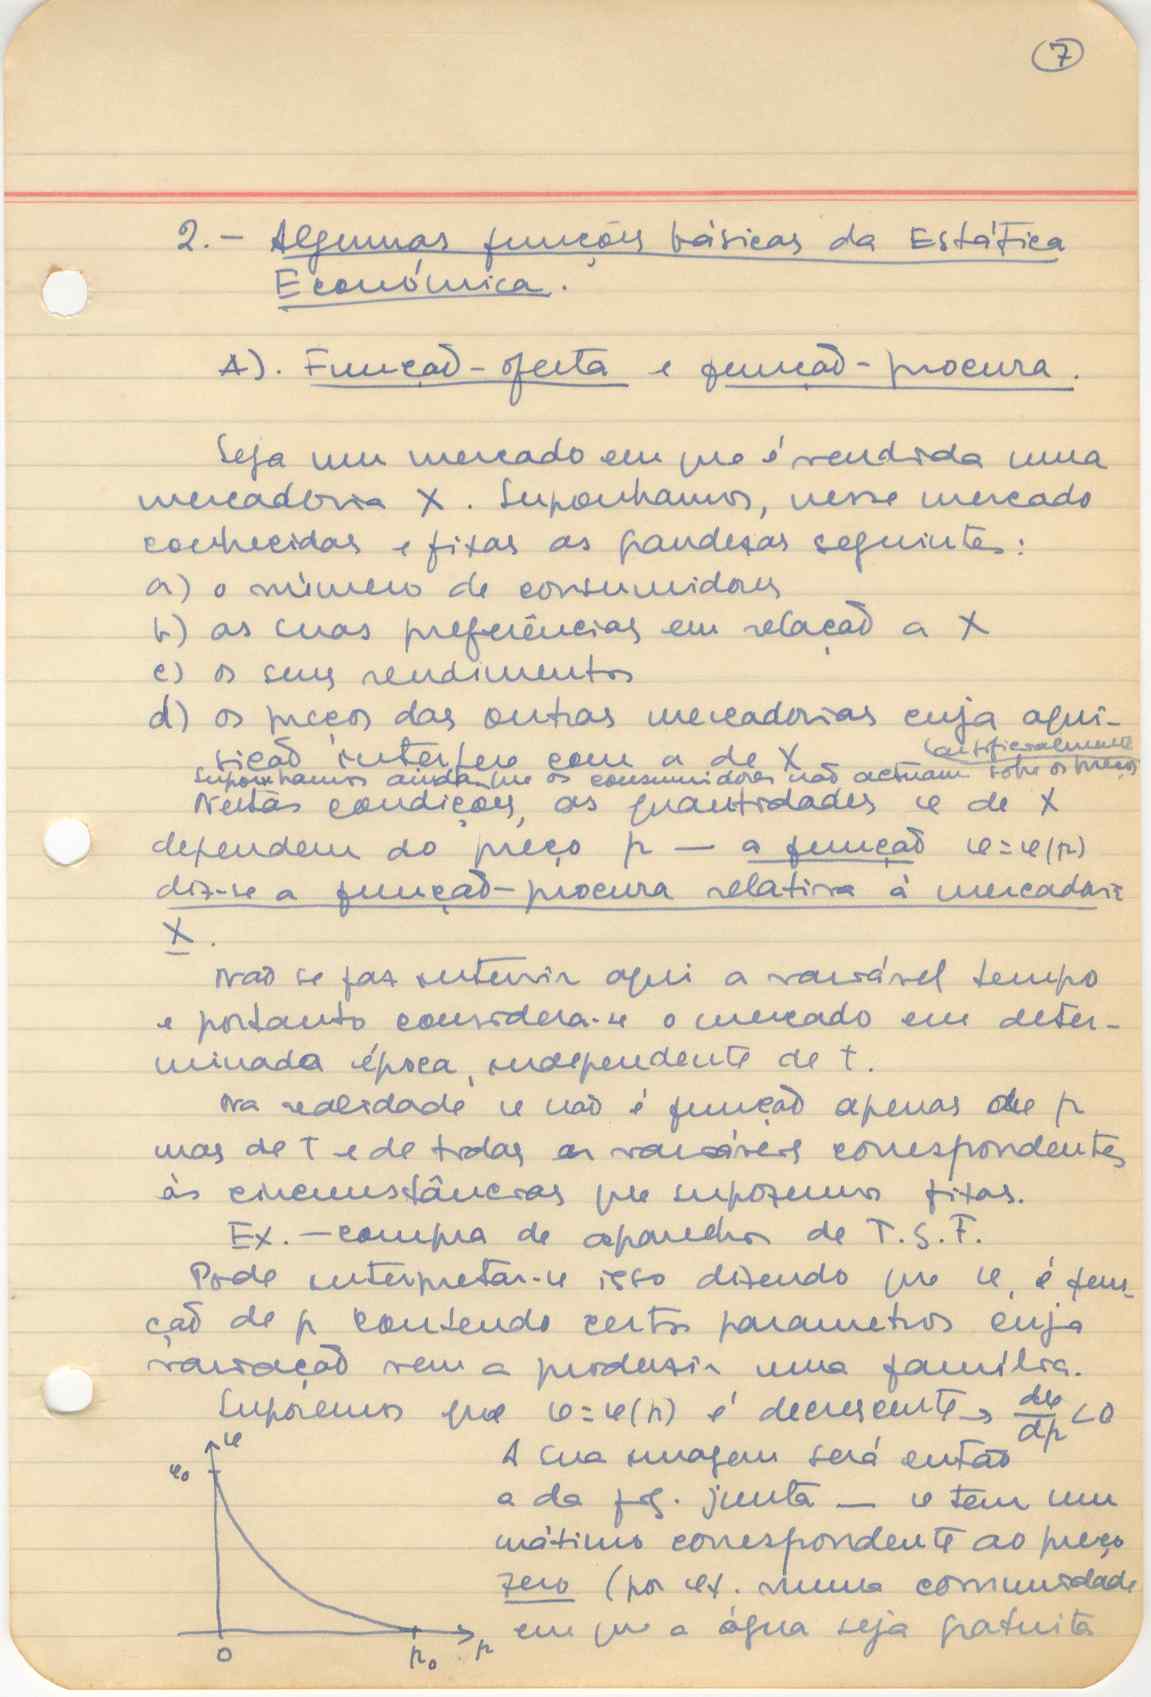 7
2.- Algumas funções básicas da Estática
Económica.
A). Função-oferta e função-procura.
Seja um mercado em que é vendida uma
mercadoria X. Suponhamos, nesse mercado
conhecidas e fixas as grandezas seguintes:
a) o número de consumidores
b) as suas preferências em relação a X
c) os seus rendimentos
d) os preços das outras mercadorias cuja aqui-
sição interfere com a de X
(artificialmente
Suponhamos ainda que os consumidores não actuam sobre os preços
Nestas condições, as quantidades φ de X
dependem do preço p — a função φ=φ(p)
diz-se a função-procura relativa à mercadoria
X.
Não se faz intervir aqui a variável tempo
e portanto considera-se o mercado em deter-
minada época, independente de t.
Na realidade φ não é função apenas de p
mas de t e de todas as variáveis correspondentes
às circunstâncias que supozemos fixas.
Ex. — compra de aparelhos de T.S.F.
Pode interpretar-se isso dizendo que φ é fun-
ção de p contendo certos parametros cuja
variação vem a produzir uma família.
Suporemos que φ=φ(p) é decrescente → dφ/dp <0
A sua imagem será então
a da fig. junta — φ tem um
máximo correspondente ao preço
zero (por ex. numa comunidade
em que a água seja gratuita
φ
φ₀
0
p₀
p